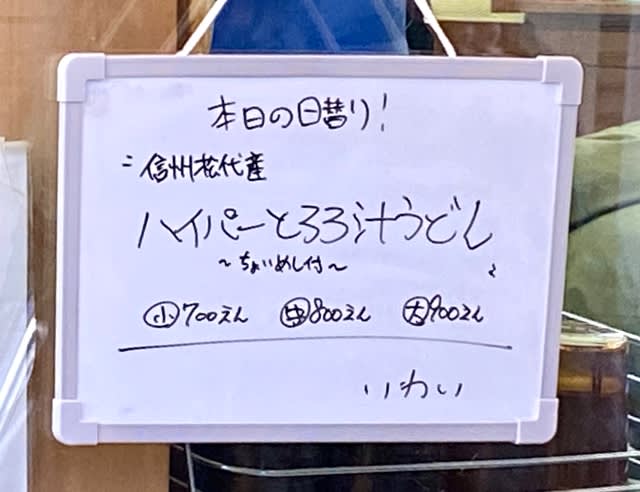 本日の日替り!
信州松代産
ハイパーとろろ汁うどん
～ちょいめし付～
小700えん 中800えん 大900えん
いわい